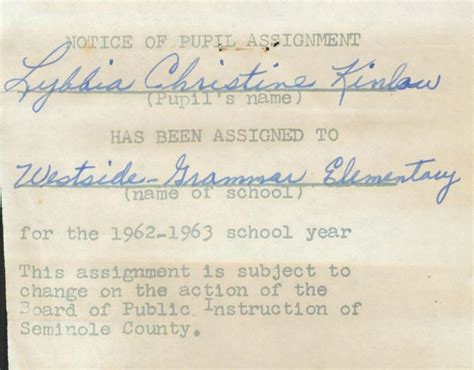 NOTICE OF PUPIL ASSIGNMENT
Lybbia Christine Kinlaw
(Pupil's name)
HAS BEEN ASSIGNED TO
Westside-Grammar Elementary
(name of school)
for the 1962-1963 school year
This assignment is subject to
change on the action of the
Board of Public Instruction of
Seminole County.